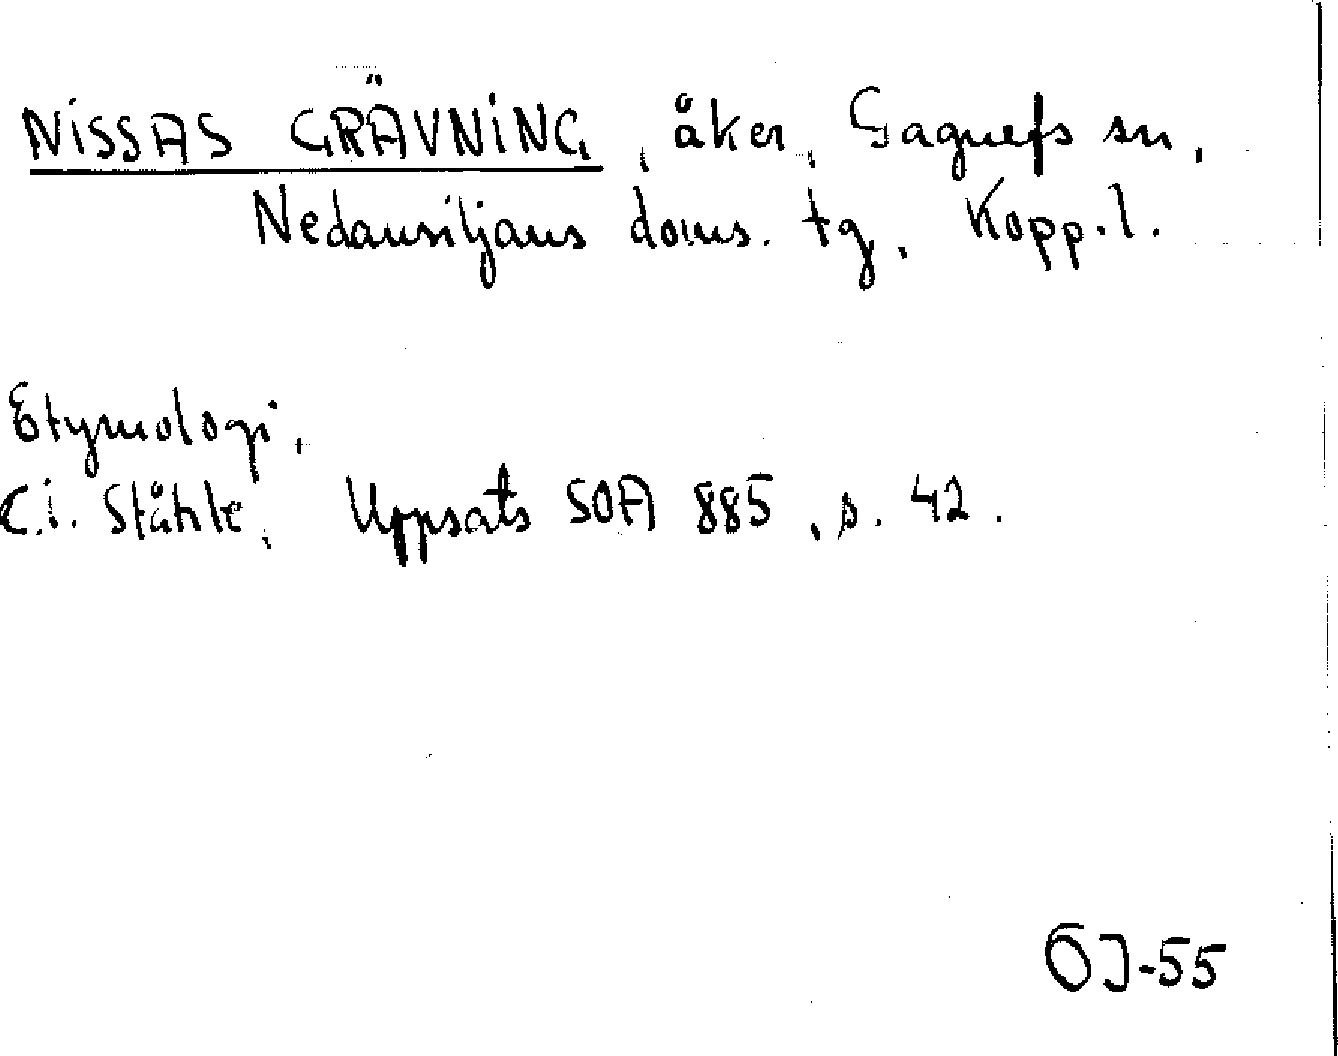 NISSAS GRÄVNING, åker, Gagnefs sn,
Nedansiljans doms. tg, Kopp.l.
Etymologi,
C.I. Ståhle, Uppsats SOA 885, s. 42.
ÖJ-55